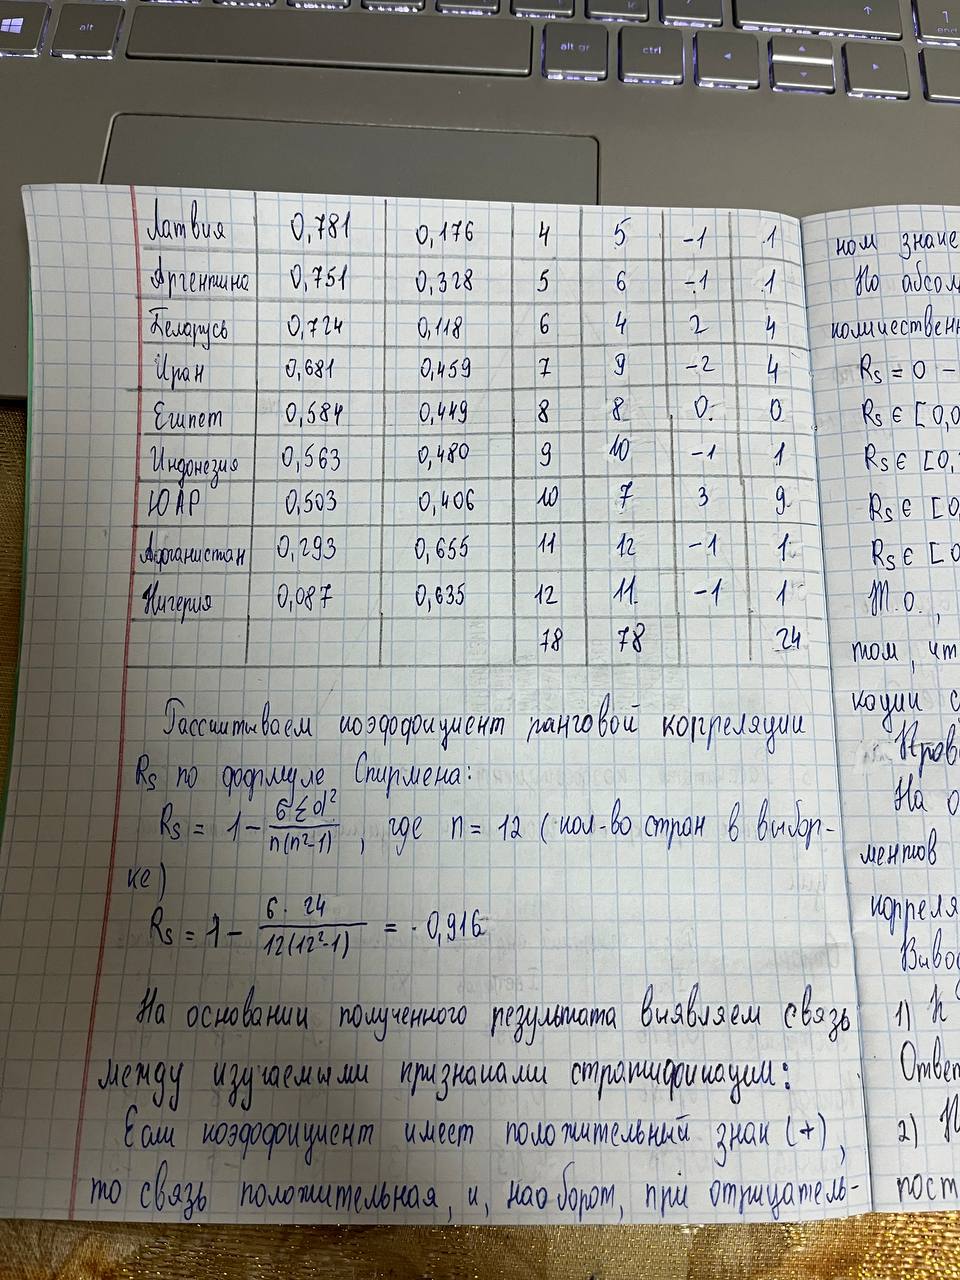 alt
alt gr
ctrl
end
Латвия 0,781 0,176 4 5 -1 1
Аргентина 0,751 0,328 5 6 -1 1
Беларусь 0,724 0,118 6 4 2 4
Иран 0,681 0,459 7 9 -2 4
Египет 0,584 0,449 8 8 0 0
Индонезия 0,563 0,480 9 10 -1 1
ЮАР 0,503 0,406 10 7 3 9
Афганистан 0,293 0,655 11 12 -1 1
Нигерия 0,087 0,635 12 11 -1 1
78 78 24
Рассчитываем коэффициент ранговой корреляции
Rs по формуле Спирмена:
Rs = 1 - 6Σd² / n(n²-1), где n = 12 (кол-во стран в выбор-
ке)
Rs = 1 - 6 · 24 / 12(12²-1) = 0,916
На основании полученного результата выявляем связь
между изучаемыми признаками стратификации:
Если коэффициент имеет положительный знак (+),
то связь положительная, и, наоборот, при отрицатель-
ном значе
По абсол
количествен
Rs = 0 -
Rs ∈ [0,0
Rs ∈ [0,
Rs ∈ [0,
Rs ∈ [0
Т.о.,
том, чт
кации с
Пров
На о
ментов
корреля
Выво
1) К
Ответ
2) К
пост